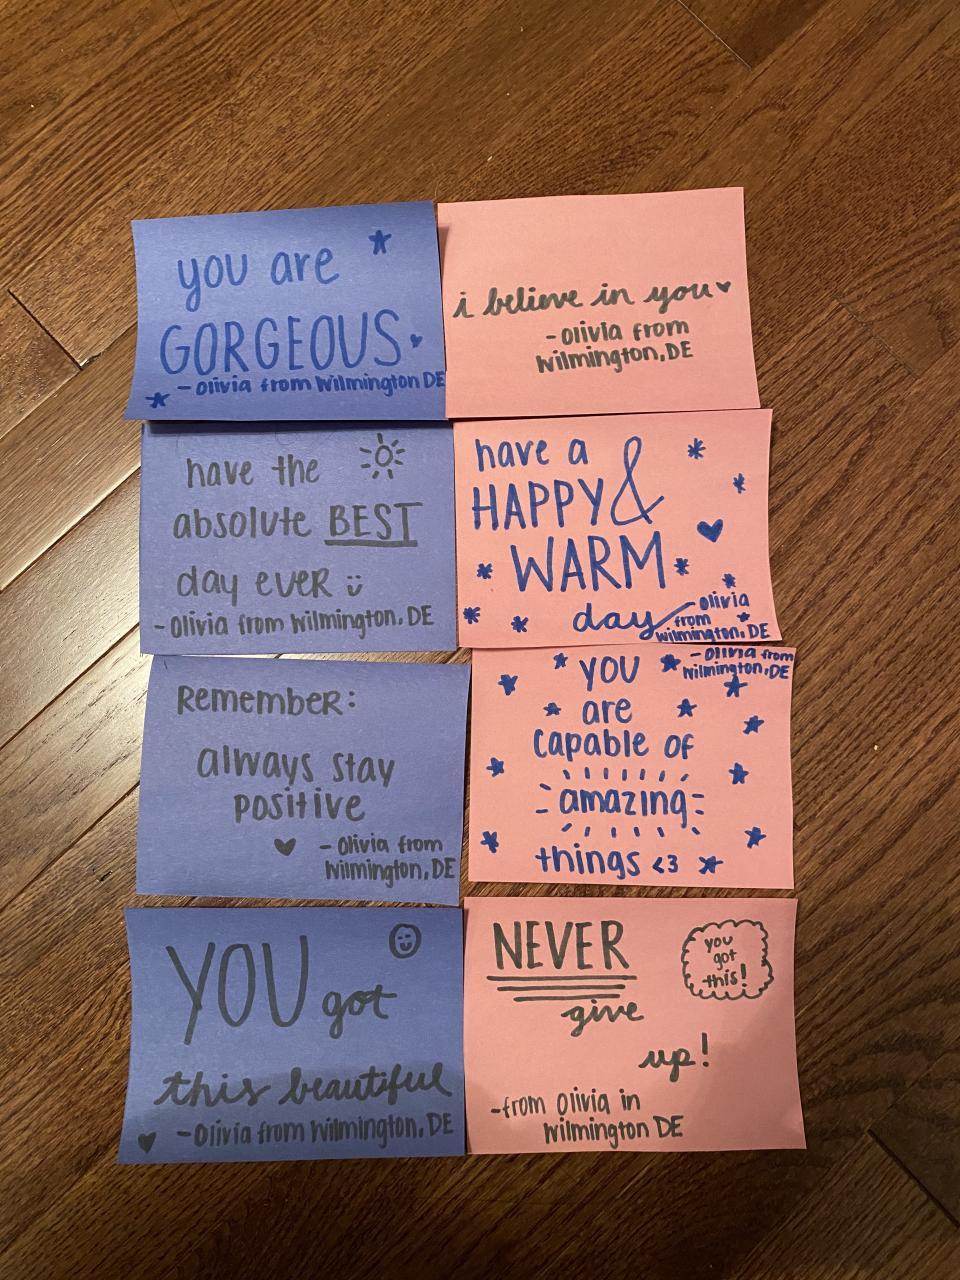 you are
GORGEOUS
- Olivia from Wilmington DE
i believe in you
- Olivia from
Wilmington, DE
have the
absolute BEST
day ever
- Olivia from Wilmington, DE
have a
HAPPY &
WARM
day
- Olivia
from
Wilmington, DE
Remember:
always stay
positive
- Olivia from
Wilmington, DE
- Olivia from
Wilmington, DE
YOU
are
capable of
amazing
things <3
YOU got
this beautiful
- Olivia from Wilmington, DE
NEVER
give
up!
you
got
this!
- from Olivia in
Wilmington DE